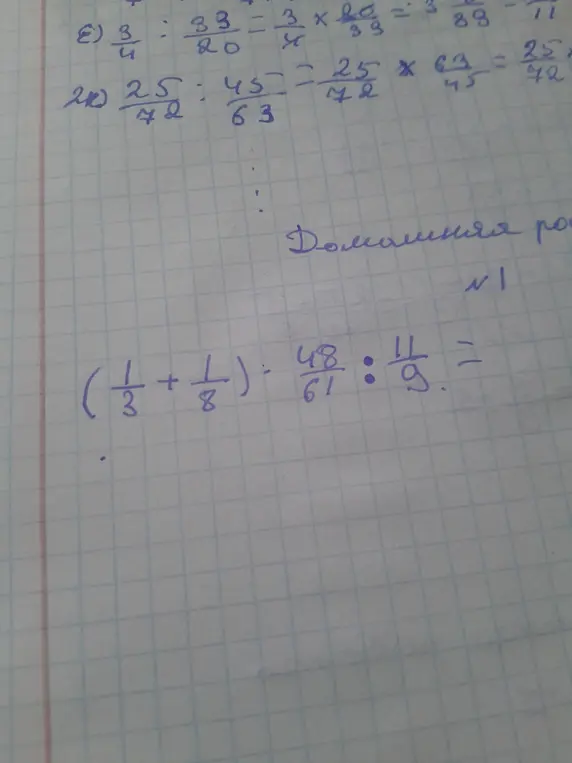 е) 3/4 : 33/20 = 3/4 × 20/33 =
ж) 25/72 : 45/63 = 25/72 × 63/45 = 25/72
Домашняя
№1
(1/3 + 1/8) · 48/61 : 11/9 =